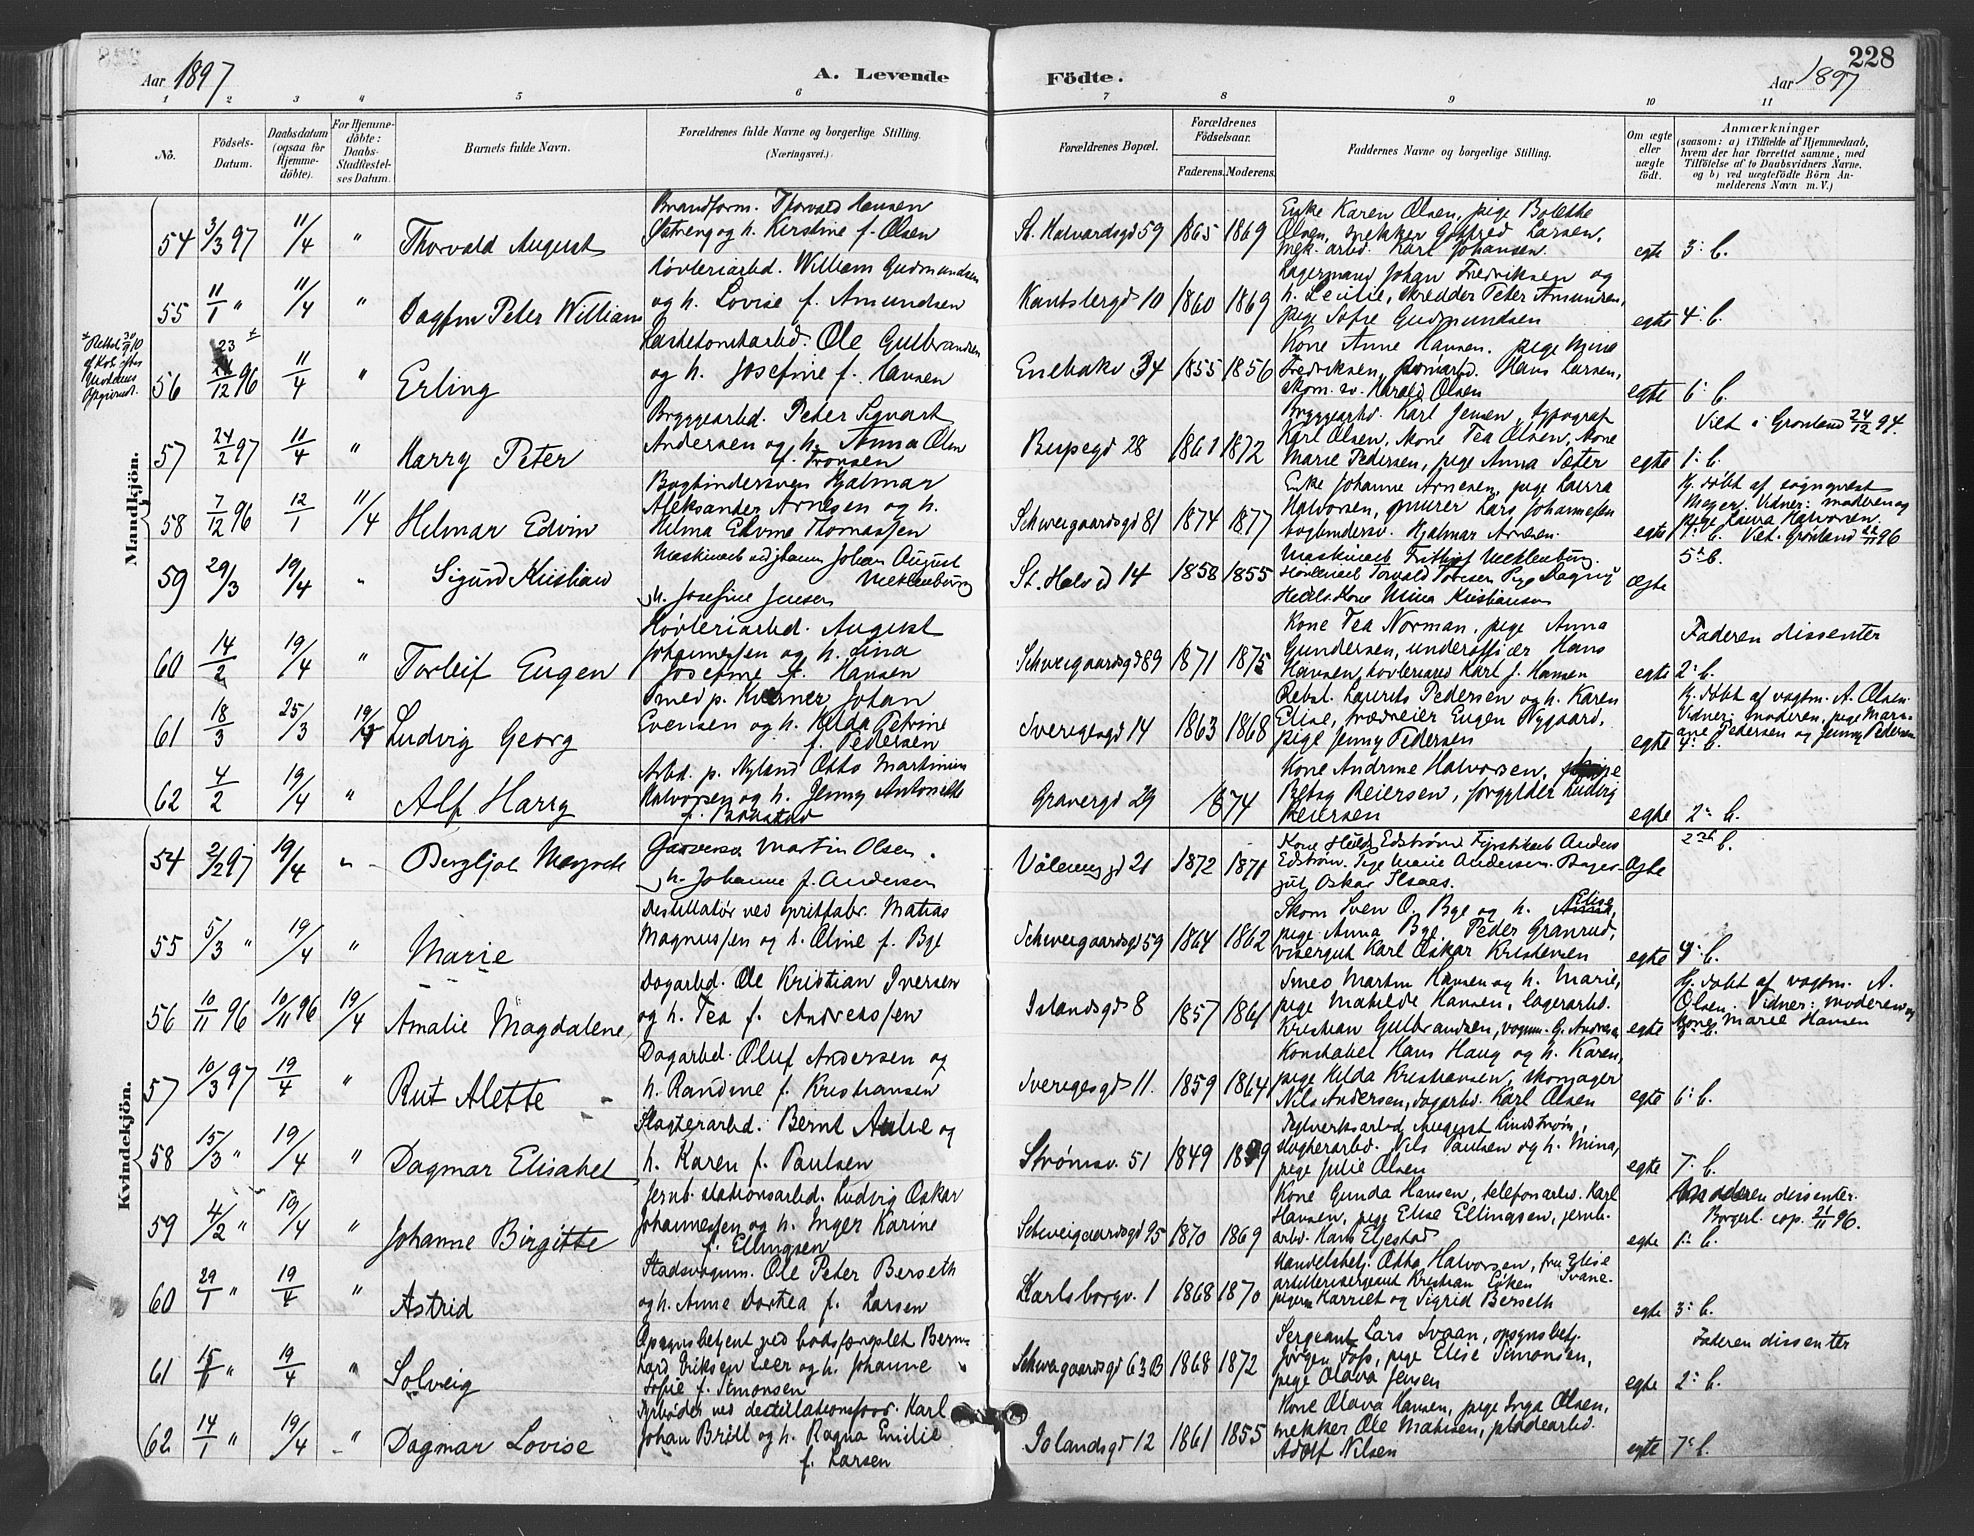 228
Aar 1897
A. Levende Födte.
Aar 1897
1 2 3 4 5 6 7 8 9 10 11
No.
Födsels-Datum.
Daabsdatum (ogsaa for Hjemme-döbte).
For Hjemme-döbte: Daabs-Stadfæstel-ses Datum.
Barnets fulde Navn.
Forældrenes fulde Navne og borgerlige Stilling.
(Næringsvei.)
Forældrenes Bopæl.
Forældrenes Födselsaar.
Faderens. Moderens.
Faddernes Navne og borgerlige Stilling.
Om ægte eller uægte födt.
Anmærkninger
(saasom: a) i Tilfælde af Hjemmedaab, hvem der har forrettet samme, med Tilföielse af to Daabsvidners Navne, og b) ved uægtefödte Börn An-melderens Navn m. V.)
Mandkjön.
54 3/3 97 11/4 " Thorvald August
Brandform. Thorvald Hansen
Østreng og h. Kirstine f. Olsen
St. Halvardsgd 59 1865 1869
Enke Karen Olsen, pige Bolette
Olsen, snekker Gotfred Larsen,
mek. arbd. Karl Johansen.
egte 3: b.
55 11/1 " 11/4 " Dagfin Peter William
Høvleriarbd. William Gudmundsen
og h. Lovise f. Amundsen
Kantslergd 10 1860 1869
Lagermand Johan Fredriksen og
h. Cecilie, skredder Peter Amundsen,
pige Sofie Gudmundsen
egte 4: b.
56 23/12 96 11/4 " Erling
Ole Gulbrandsen
og h. Josefine f. Hansen
Enebakv 34 1855 1856
Kone Anne Hansen, pige Mine
Fredriksen, Hans Larsen,
skom. sv. Harald Olsen
egte 6: b.
57 24/2 97 11/4 " Harry Peter
Bryggearbd. Peter Sigvart
Andersen og h. Anna Olin
f. Tronsen
Bispegd 28 1861 1872
Bryggearbd. Karl Jensen, typograf
Karl Olsen, kone Tea Olsen, kone
Marie Pedersen, pige Anna Sæter
egte 1: b.
Viet i Grønland 24/12 94.
58 7/12 96 12/1 11/4 Hilmar Edvin
Bogbindersven Hjalmar
Aleksander Arnesen og h.
Hilma Elvine Thomassen
Schweigaardsgd 81 1874 1877
Enke Johanne Arnesen, pige Laura
Halvorsen, murer Lars Johannessen
bogbindersv. Hjalmar Arnesen.
egte 1: b.
Hj. døbt af sogneprest
Meyer. Vidner: moderen og
pige Laura Halvorsen.
Viet. Grønland 22/11 96
59 29/3 19/4 " Sigurd Kristian
Johan August
Mecklenburg
h. Josefine Jensen
St. Halvd 14 1858 1855
Maskinarb Fritjof Mecklenburg.
Høvlerarb Torvald Pige Dagny
Kone Mina Kristiansen
Ægte 5: b.
60 14/2 19/4 " Torleif Eugen
Høvleriarbd. August
Johannessen og h. Lina
Josefine f. Hansen
Schweigaardsgd 89 1871 1875
Kone Tea Norman, pige Anna
Gundersen, underofficer Hans
Hansen, høvleriarbd Karl J. Hansen
egte 2: b.
Faderen dissenter
61 18/3 25/3 19/4 Ludvig Georg
Smed p. Kværner Johan
Evensen og h. Hilda Petrine
f. Pedersen
Sverigesgd 14 1863 1868
Rebsl. Laurits Pedersen og h. Karen
Elise, trædreier Eugen Nygaard,
pige Jenny Pedersen
egte 4: b.
Hj. døbt af vogtm. A. Olsen
Vidner: moderen, pige Mari-
ane Pedersen og Jenny Pedersen
62 4/2 19/4 " Alf Harry
Arbd. p. Nyland Otto Martinius
Halvorsen og h. Jenny Antonette
f. Braastad
Gravergd 29 1874
Kone Andrine Halvorsen, pige
Betsy Reiersen, forgylder Ludvig
Reiersen
egte 2: b.
Kvindekjön.
54 2/2 97 19/4 " Bergljot Margrete
Martin Olsen.
h. Johanne f. Andersen
Vålereng gd 21 1872 1871
Kone Hulda Edstrøm Fyrstikarb Anders
Edstrøm. Pige Marie Andersen. Bager-
gut Oskar Isaas.
Ægte 2 b.
55 5/3 " 19/4 " Marie
Destillatør ved spritfabr. Matias
Magnussen og h. Oline f. Bye
Schweigaardsgd 59 1864 1862
Skom Sven O. Bye og h. Elise,
pige Anna Bye, Peder Granrud,
visergut Karl Oskar Kristensen
egte 4: b.
56 10/11 96 10/11 96 19/4 Amalie Magdalene
Dagarbd. Ole Kristian Iversen
og h. Tea f. Andreassen
Islandsgd 8 1857 1861
Smed Martin Hansen og h. Marie,
pige Matilde Hansen, lagerarbd.
Kristian Gulbrandsen, vognm. G. Andersen
egte
Hj. døbt af vogtm. A.
Olsen. Vidner: moderen og
kone Marie Hansen
57 10/3 97 19/4 " Rut Alette
Dagarbd. Oluf Andersen og
h. Randine f. Kristiansen
Sverigesgd 11. 1859 1864
Konstabel Hans Haug og h. Karen,
pige Hilda Kristiansen, skomager
Nils Andersen, dagarbd. Karl Olsen
egte 6: b.
58 15/3 " 19/4 " Dagmar Elisabet
Slagteriarbd. Bernt Aulie og
h. Karen f. Paulsen
Strømsv. 51 1849 1859
Teglverksarbd August Lindstrøm,
slagteriarbd. Nils Paulsen og h. Mina,
pige Julie Olsen
egte 7: b.
59 4/2 " 19/4 " Johanne Birgitte
Jernb. stationsarbd. Ludvig Oskar
Johannessen og h. Inger Karine
f. Ellingsen
Schweigaardsgd 95 1870 1869
Kone Gunda Hansen, telefonarbd. Karl
Hansen, pige Elise Ellingsen, jernb.
arbd. Hans Eljestad
egte 1: b.
Moderen dissenter.
Borgerl. cop. 21/11 96.
60 29/1 " 19/4 " Astrid
Stadsvognm. Ole Peter Berseth
og h. Anne Dortea f. Larsen
Karlsborgv. 1 1868 1870
Handelsbetj. Otto Halvorsen, fru Elise
artillerisergeant Kristian Løken
pigerne Harriet og Sigrid Berseth
egte 3: b.
61 15/1 " 19/4 " Solveig
Opsynsbetjent ved bodsfængslet Bern-
hard Eriksen Leer og h. Johanne
Sofie f. Simonsen
Schweigaardsgd 63 B 1868 1872
Sergeant Lars Svaan, opsynsbetj.
Jørgen Foss, pige Elise Simonsen,
pige Olava Jensen
egte 2: b.
Faderen dissenter
62 14/1 " 19/4 " Dagmar Lovise
Fyrbøder ved destillationsfor. Karl
Johan Bråll og h. Ragna Emilie
f. Larsen
Islandsgd 12 1861 1855
Kone Olava Hansen, pige Inga Olsen,
snekker Ole Madsen, pladearbd.
Adolf Nilsen
egte 7: b.